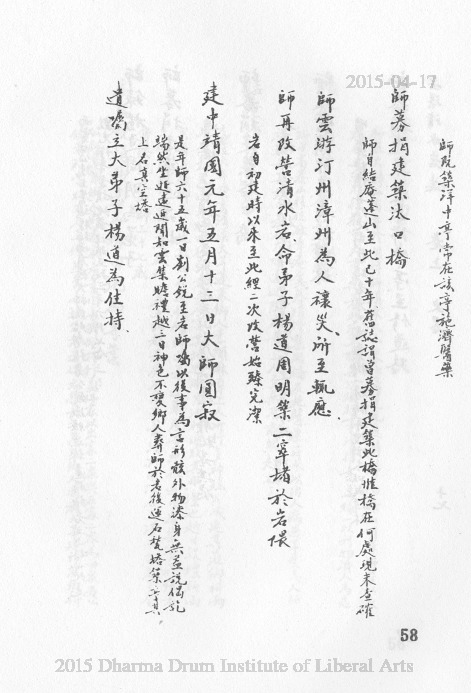 2015-04-17
師既築洋中亭常在該亭施濟醫藥
師募捐建築汰口橋
師自結廬蓬山至此已十年在誌謂曾募捐建築此橋惟橋在何處現未查確
師雲游汀州漳州為人禳災、所至輒應、
師再改營清水岩、命弟子楊道周明築二窣堵於岩隈
岩自初建時以來至此經二次改營始臻完潔
建中靖國元年五月十三日大師圓寂
是年師六十五歲一日劉公銳至岩師囑以後事為言形骸外物漆身無益說偈訖
端然坐逝遠近聞知雲集瞻禮越三日神色不變鄉人葬師於岩後運石甃塔築亭其
上名真空塔
遺囑立大弟子楊道為住持、
58
2015 Dharma Drum Institute of Liberal Arts